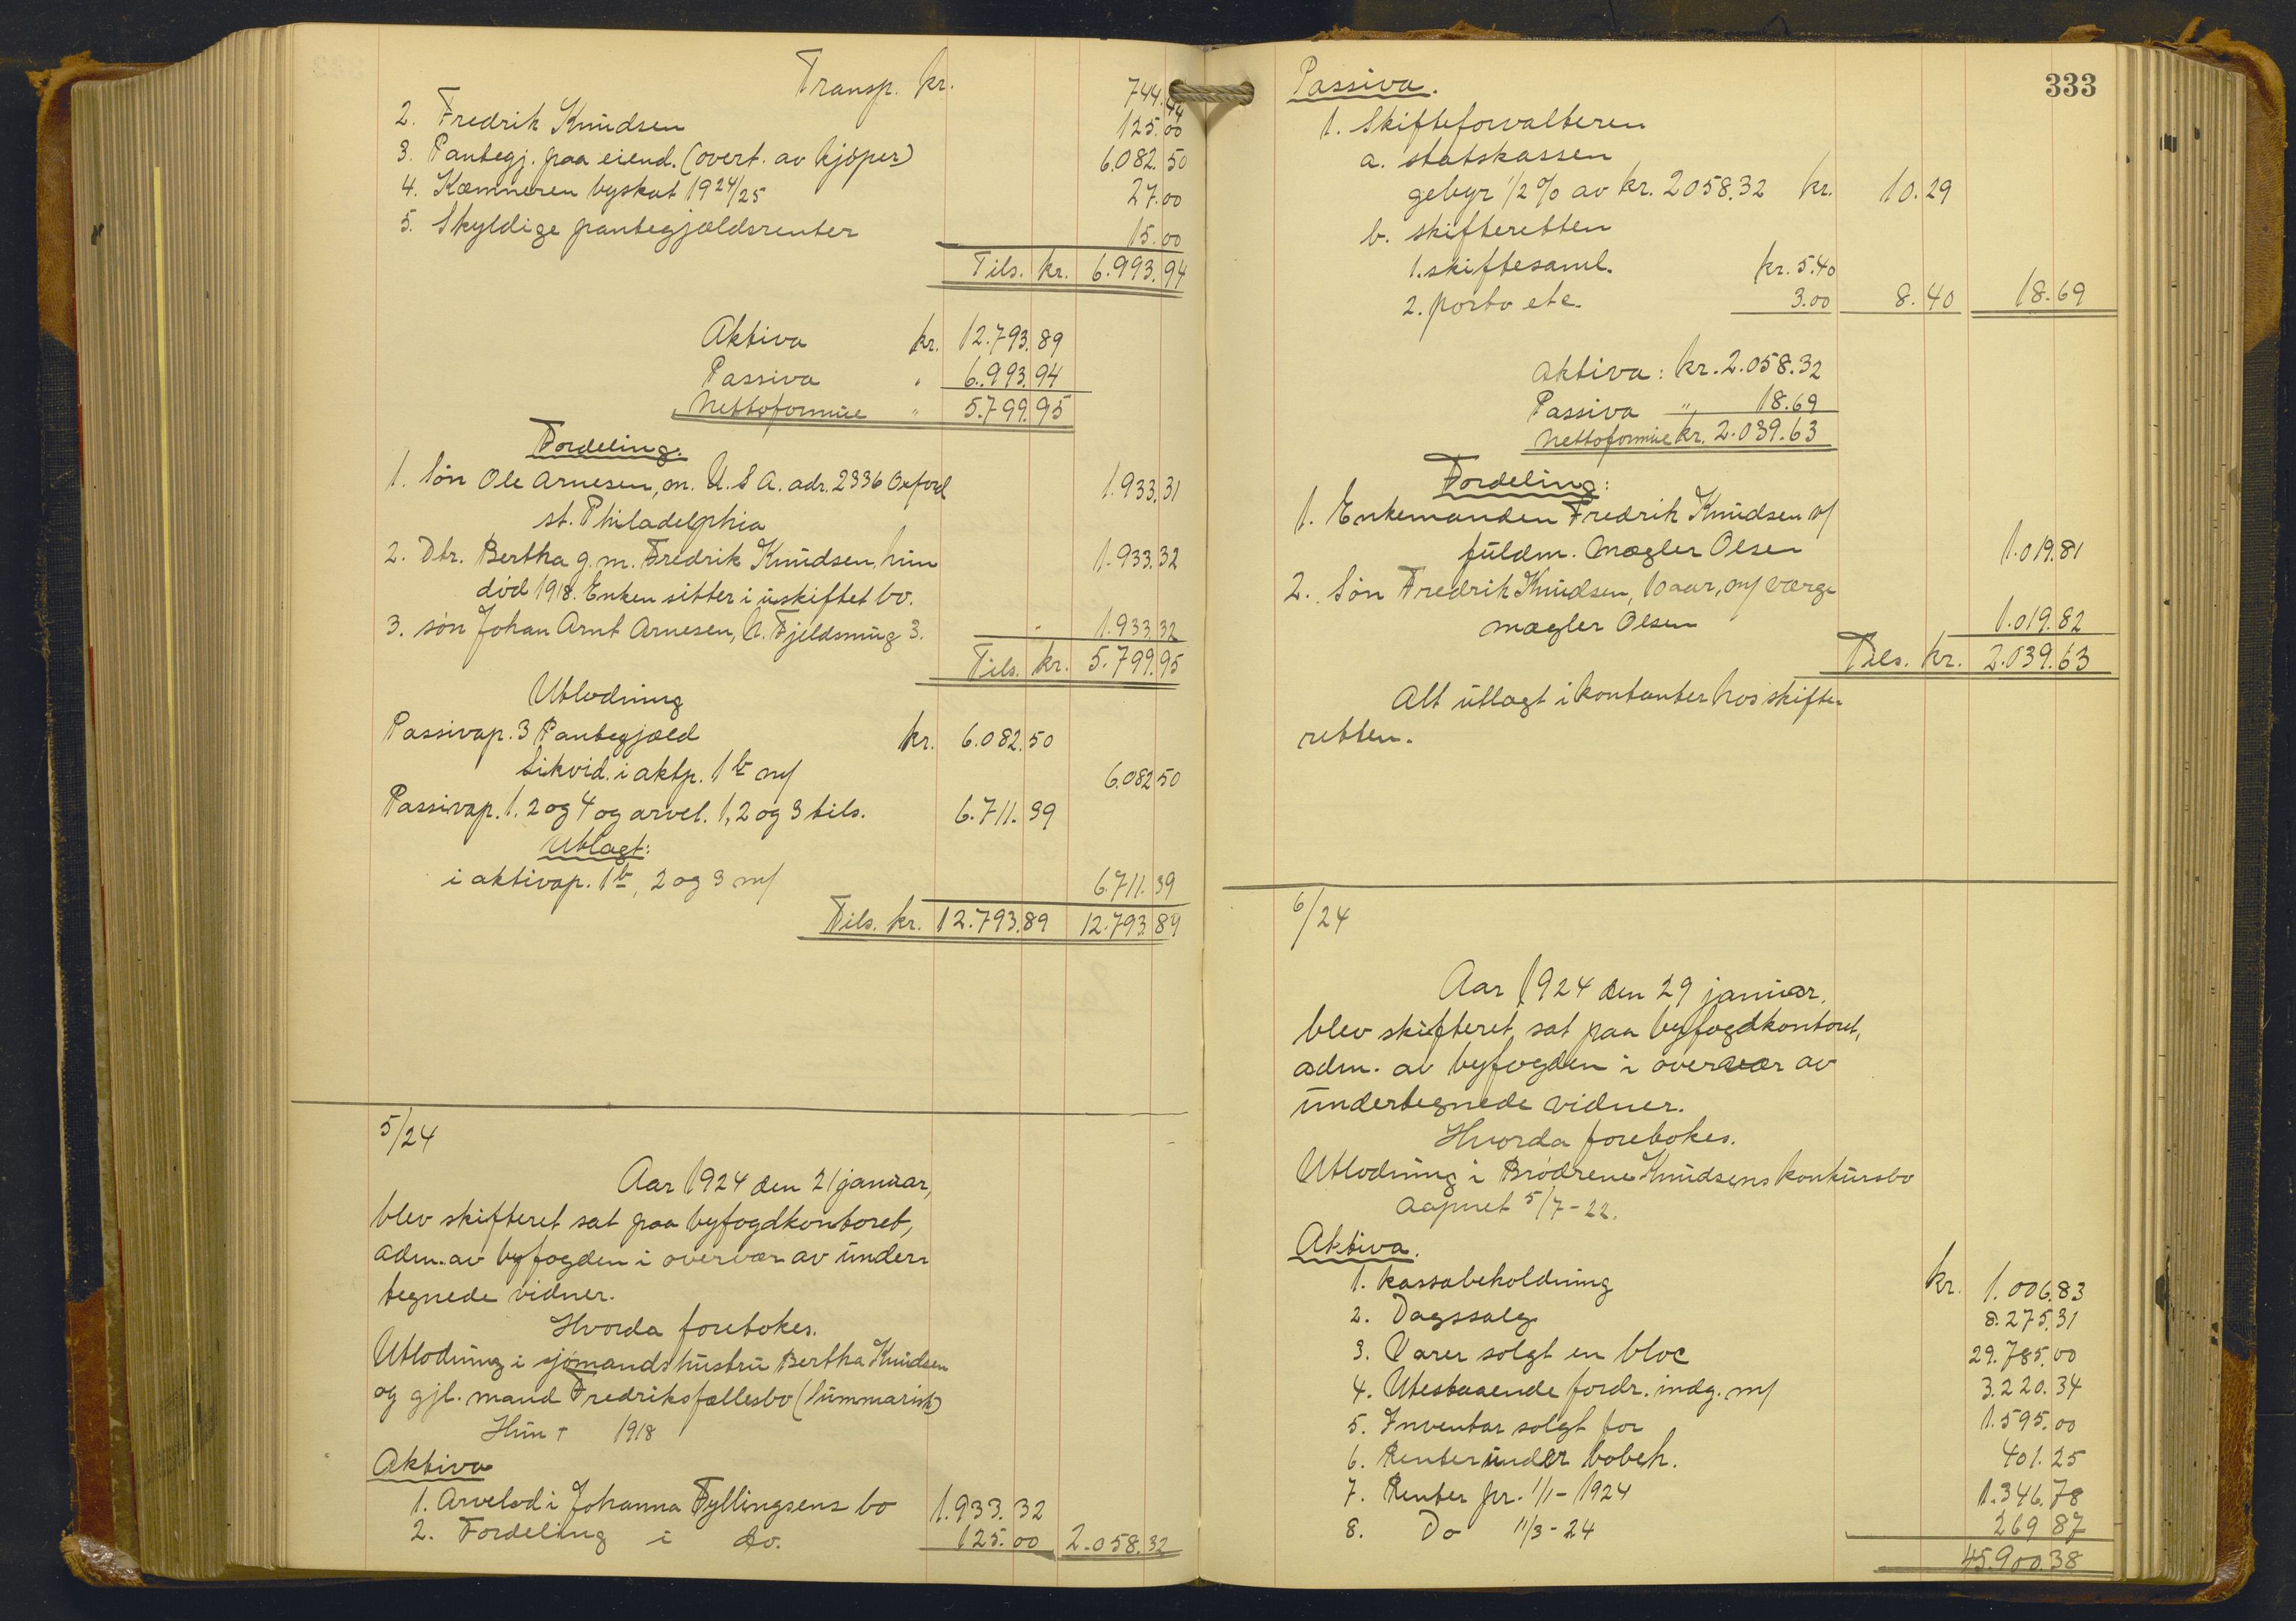 Transp. kr. 744.44
2. Fredrik Knudsen 125.00
3. Pantegj. paa eiend. (overt. av kjöper) 6.082.50
4. Kæmneren byskat 1924/25 27.00
5. Skyldige pantegjældsrenter 15.00
Tils. kr. 6.993.94
Aktiva kr. 12.793.89
Passiva " 6.993.94
Nettoformue " 5.799.95
Fordeling.
1. Sön Ole Arnesen, m. U.S A. adr. 2336 Oxford 1.933.31
st. Philadelphia
2. Dtr. Bertha g.m. Fredrik Knudsen, hun 1.933.32
död 1918. Enken sitter i uskiftet bo.
3. sön Johan Arnt Arnesen, N. Fjeldsmug 3. 1.933.32
Tils. kr. 5.799.95
Utlodning
Passivap. 3 Pantegjæld kr. 6.082.50
Likvid. i aktp. 1 b m/ 6.082 50
Passivap. 1. 2 og 4 og arvel. 1, 2 og 3 tils. 6.711.39
Utlagt:
i aktivap. 1 b, 2 og 3 m/ 6.711.39
Tils. kr. 12.793.89 12.793.89
5/24
Aar 1924 den 21 januar,
blev skifteret sat paa byfogdkontoret,
adm. av byfogden i overvær av under-
tegnede vidner.
Hvorda foretokes.
Utlodning i sjömandshustru Bertha Knudsen
og gjl. mand Fredriks fællesbo (Summarisk)
Hun † 1918
Aktiva
1. Arvelod i Johanna Fyllingsens bo 1.933.32
2. Fordeling i do. 125.00 2.058.32
333
Passiva.
1. Skifteforvalteren
a. statskassen
gebyr 1/2 % av kr. 2058.32 kr. 10.29
b. skifteretten
1. skiftesaml. kr. 5.40
2. porto etc. 3.00 8.40 18.69
Aktiva: kr. 2.058.32
Passiva " 18.69
Nettoformue kr. 2.039.63
Fordeling:
1. Enkemanden Fredrik Knudsen v/
fuldm. Mægler Olsen 1.019.81
2. Sön Fredrik Knudsen, 10 aar, m/ værge
mægler Olsen 1.019.82
Tils. kr. 2.039.63
Alt utlagt i kontanter hos skifte-
retten.
6/24
Aar 1924 den 29 januar.
blev skifteret sat paa byfogdkontoret,
adm. av byfogden i overvær av
undertegnede vidner.
Hvorda foretokes.
Utlodning i Brödrene Knudsens konkursbo
aapnet 5/7-22.
Aktiva.
1. kassabeholdning kr. 1.006.83
2. Dagssalg 8.275.31
3. Varer solgt en bloc 29.785.00
4. Utestaaende fordr. indg. m/ 3.220.34
5. Inventar solgt for 1.595.00
6. Renter under bobeh. 401.25
7. Renter pr. 1/1-1924 1.346.78
8. Do 11/3-24 269 87
45.900.38